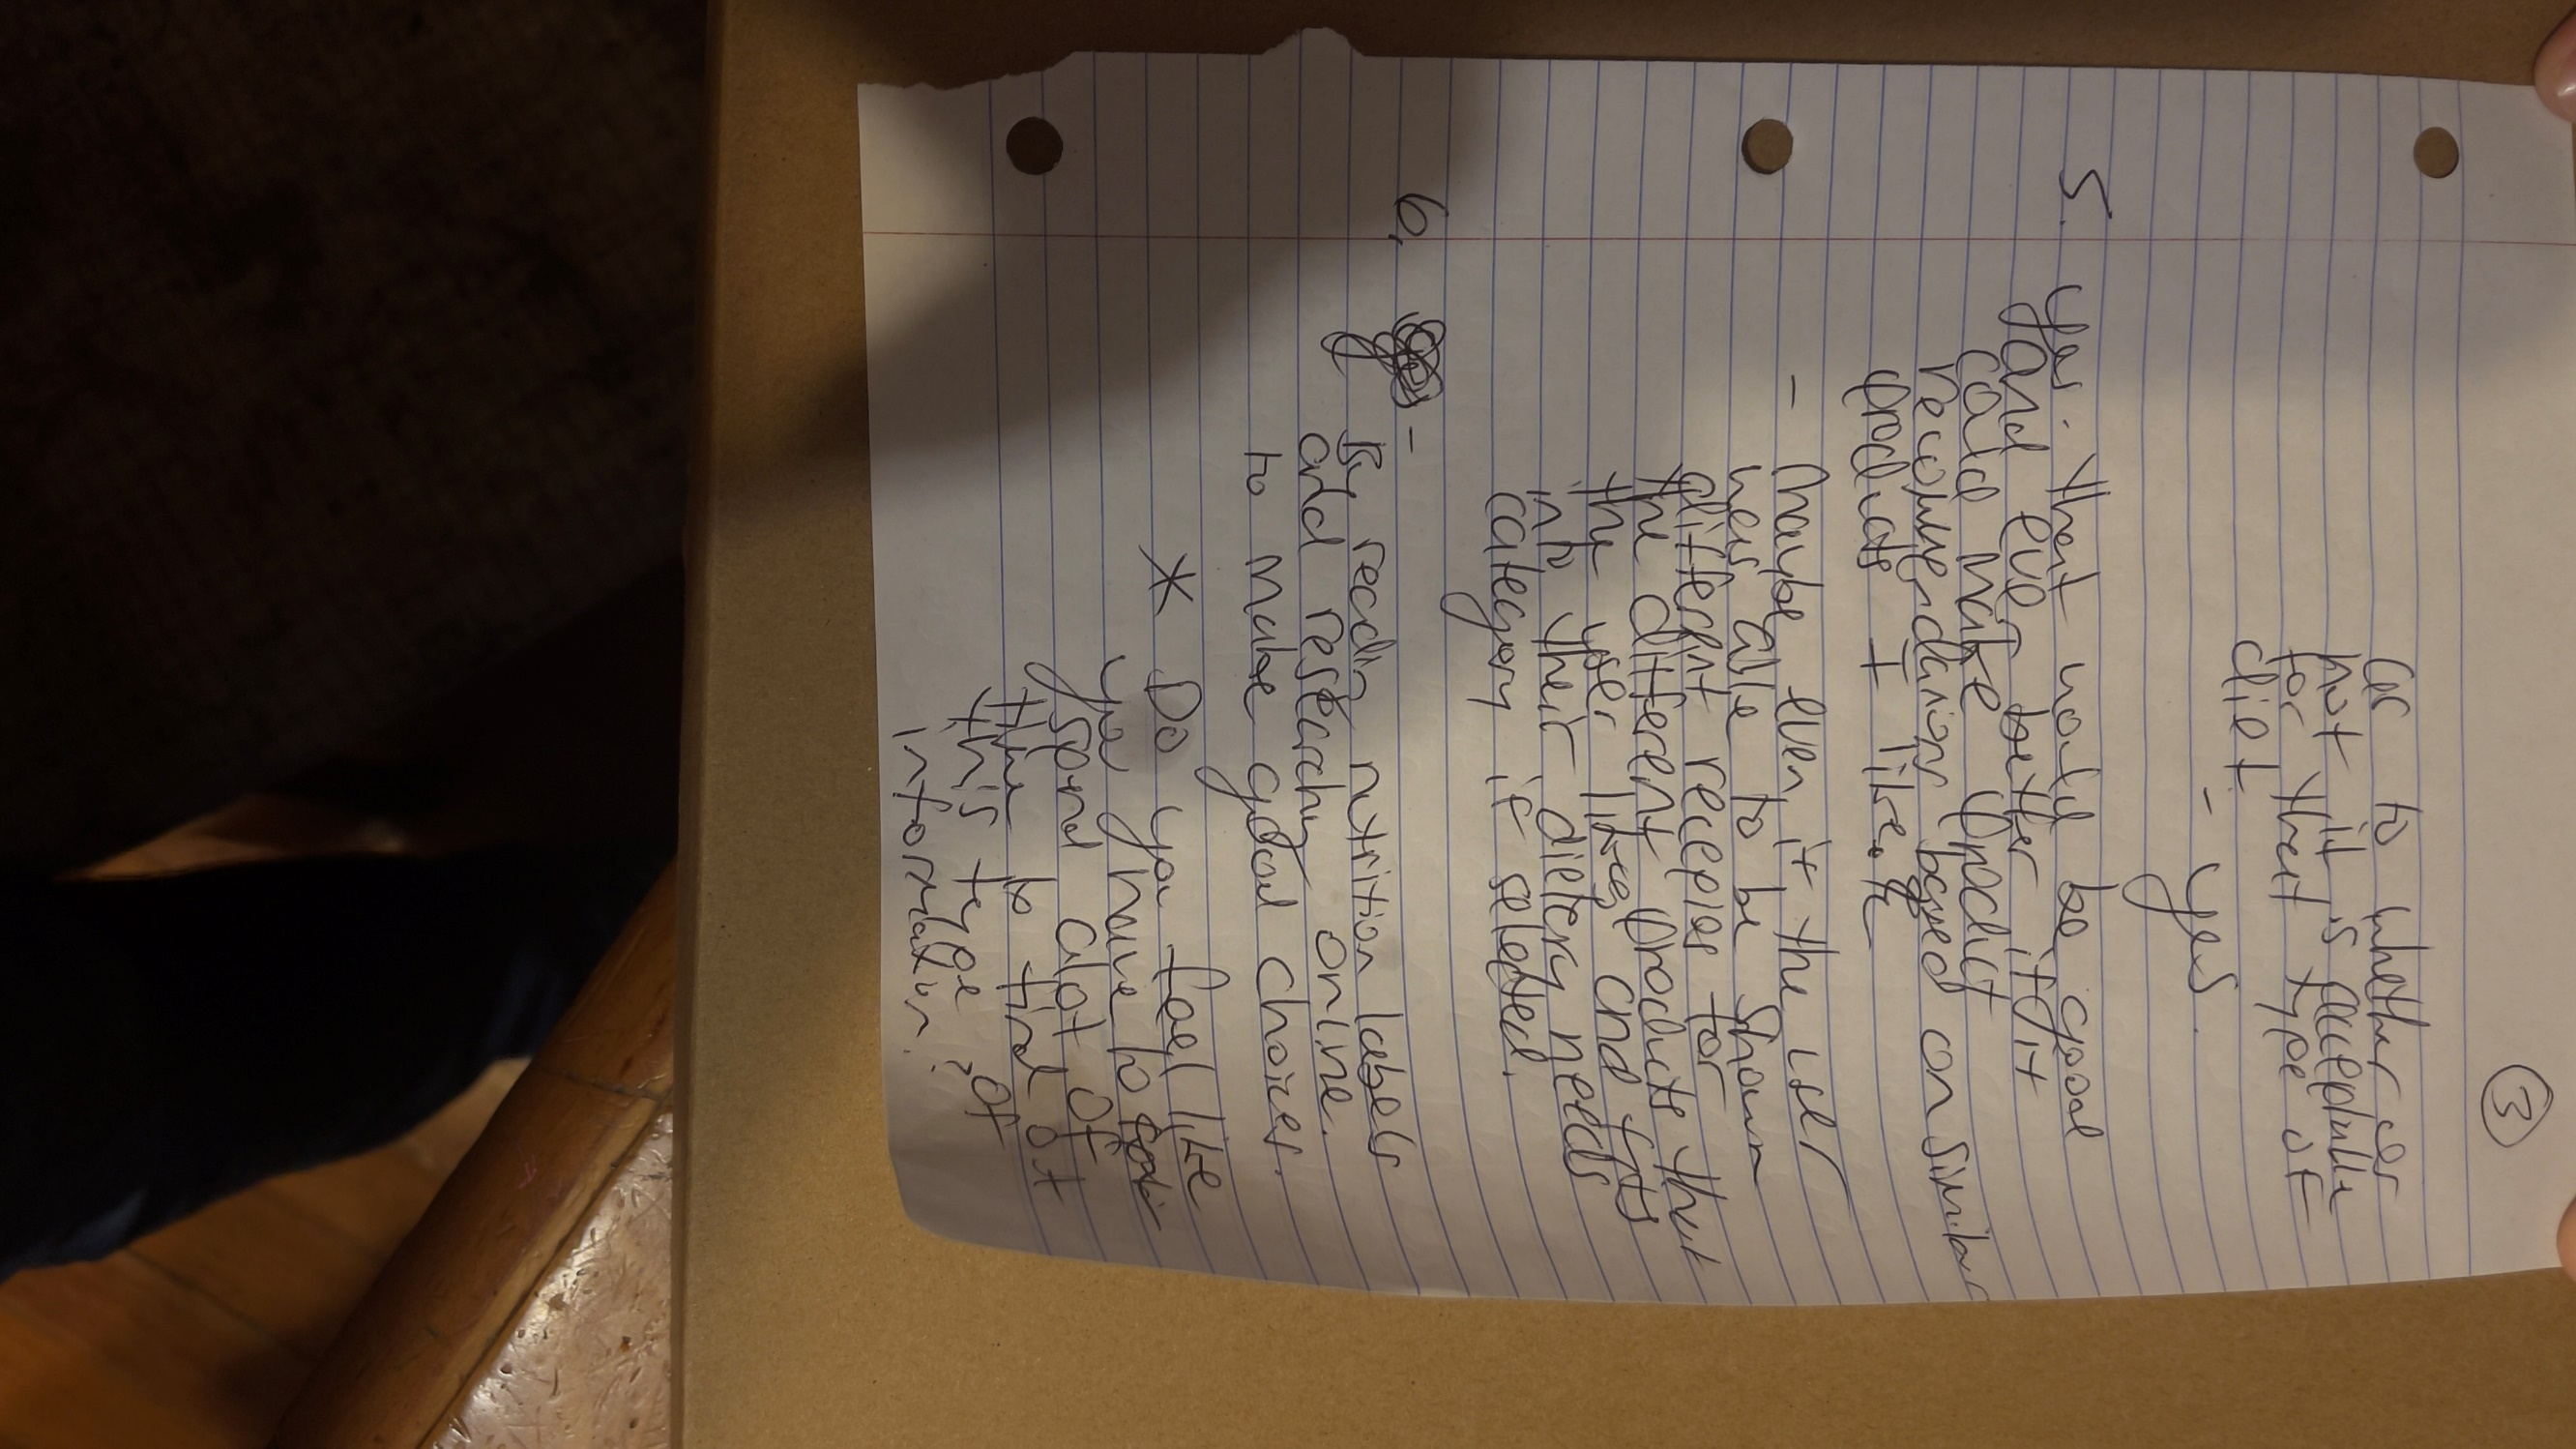 ③
as to whether or
not it is acceptable
for that type of
diet.
- yes.
5. Yes. That would be good
and even better if it
could make product
recommendations based on similar
products I like.
- Maybe even if the user
was able to be shown
different recepies for
the different products that
the user likes and fits
into their dietery needs
category if selected.
6. -
By readin nutrition labels
and researchn online.
to make good choices.
* Do you feel like
you have to
spend alot of
time to find ot
this type of
information?